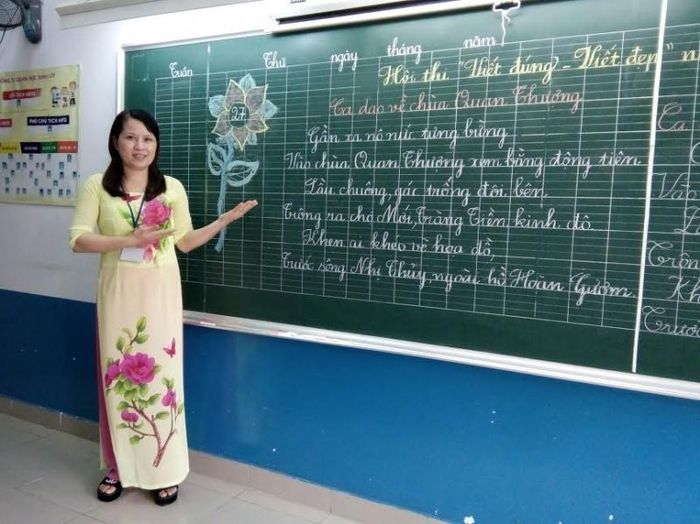 Tuần Thứ ngày tháng năm
Hội thi "Viết đúng - Viết đẹp" n
27
Ca dao về chùa Quan Thượng
Gần xa nô nức tưng bừng
Vào chùa Quan Thượng xem bằng động tiên.
Lầu chuông, gác trống đôi bên,
Trông ra chợ Mới, Tràng Tiền kinh đô.
Khen ai khéo vẽ họa đồ,
Trước sông Nhị Thủy, ngoài hồ Hoàn Gươm.
Ca
Trôn
Kh
Trước